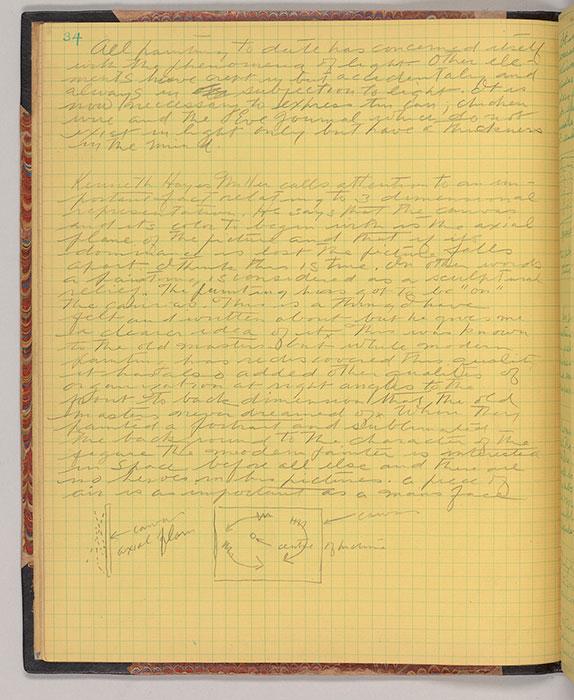 34
All painting to date has concerned itself
with the phenomena of light. Other ele-
ments have crept in but accidentally and
always in subjection to light. It is
now neccessary to express tin can, chicken
wire and the Eve Journal which do not
exist in light only but have a thickness
in the mind.
Kenneth Hayes Miller calls attention to an im-
portant fact relating to 3 dimensional
representation. He says that the canvas
and its color to begin with is the axial
plane of the picture and that if its
dominance is lost the picture falls
apart. I think this is true. In other words
a painting is considered as a sculptural
The painting has got to be "on"
the canvas. This is a thing I have
felt and written about but he gives me
a clearer idea of it. This was known
to the old masters but while modern
painter has rediscovered this quality
it has also added other qualities of
organization at right angles to the
front to back dimension that the old
masters never dreamed of. When they
painted a portrait and sublimated
the back round to the character of the
figure the modern painter is interested
in space before all else and there are
no heroes in his pictures. A piece of
air is as important as a mans face
canvas
axial plane
canvas
centre of machine